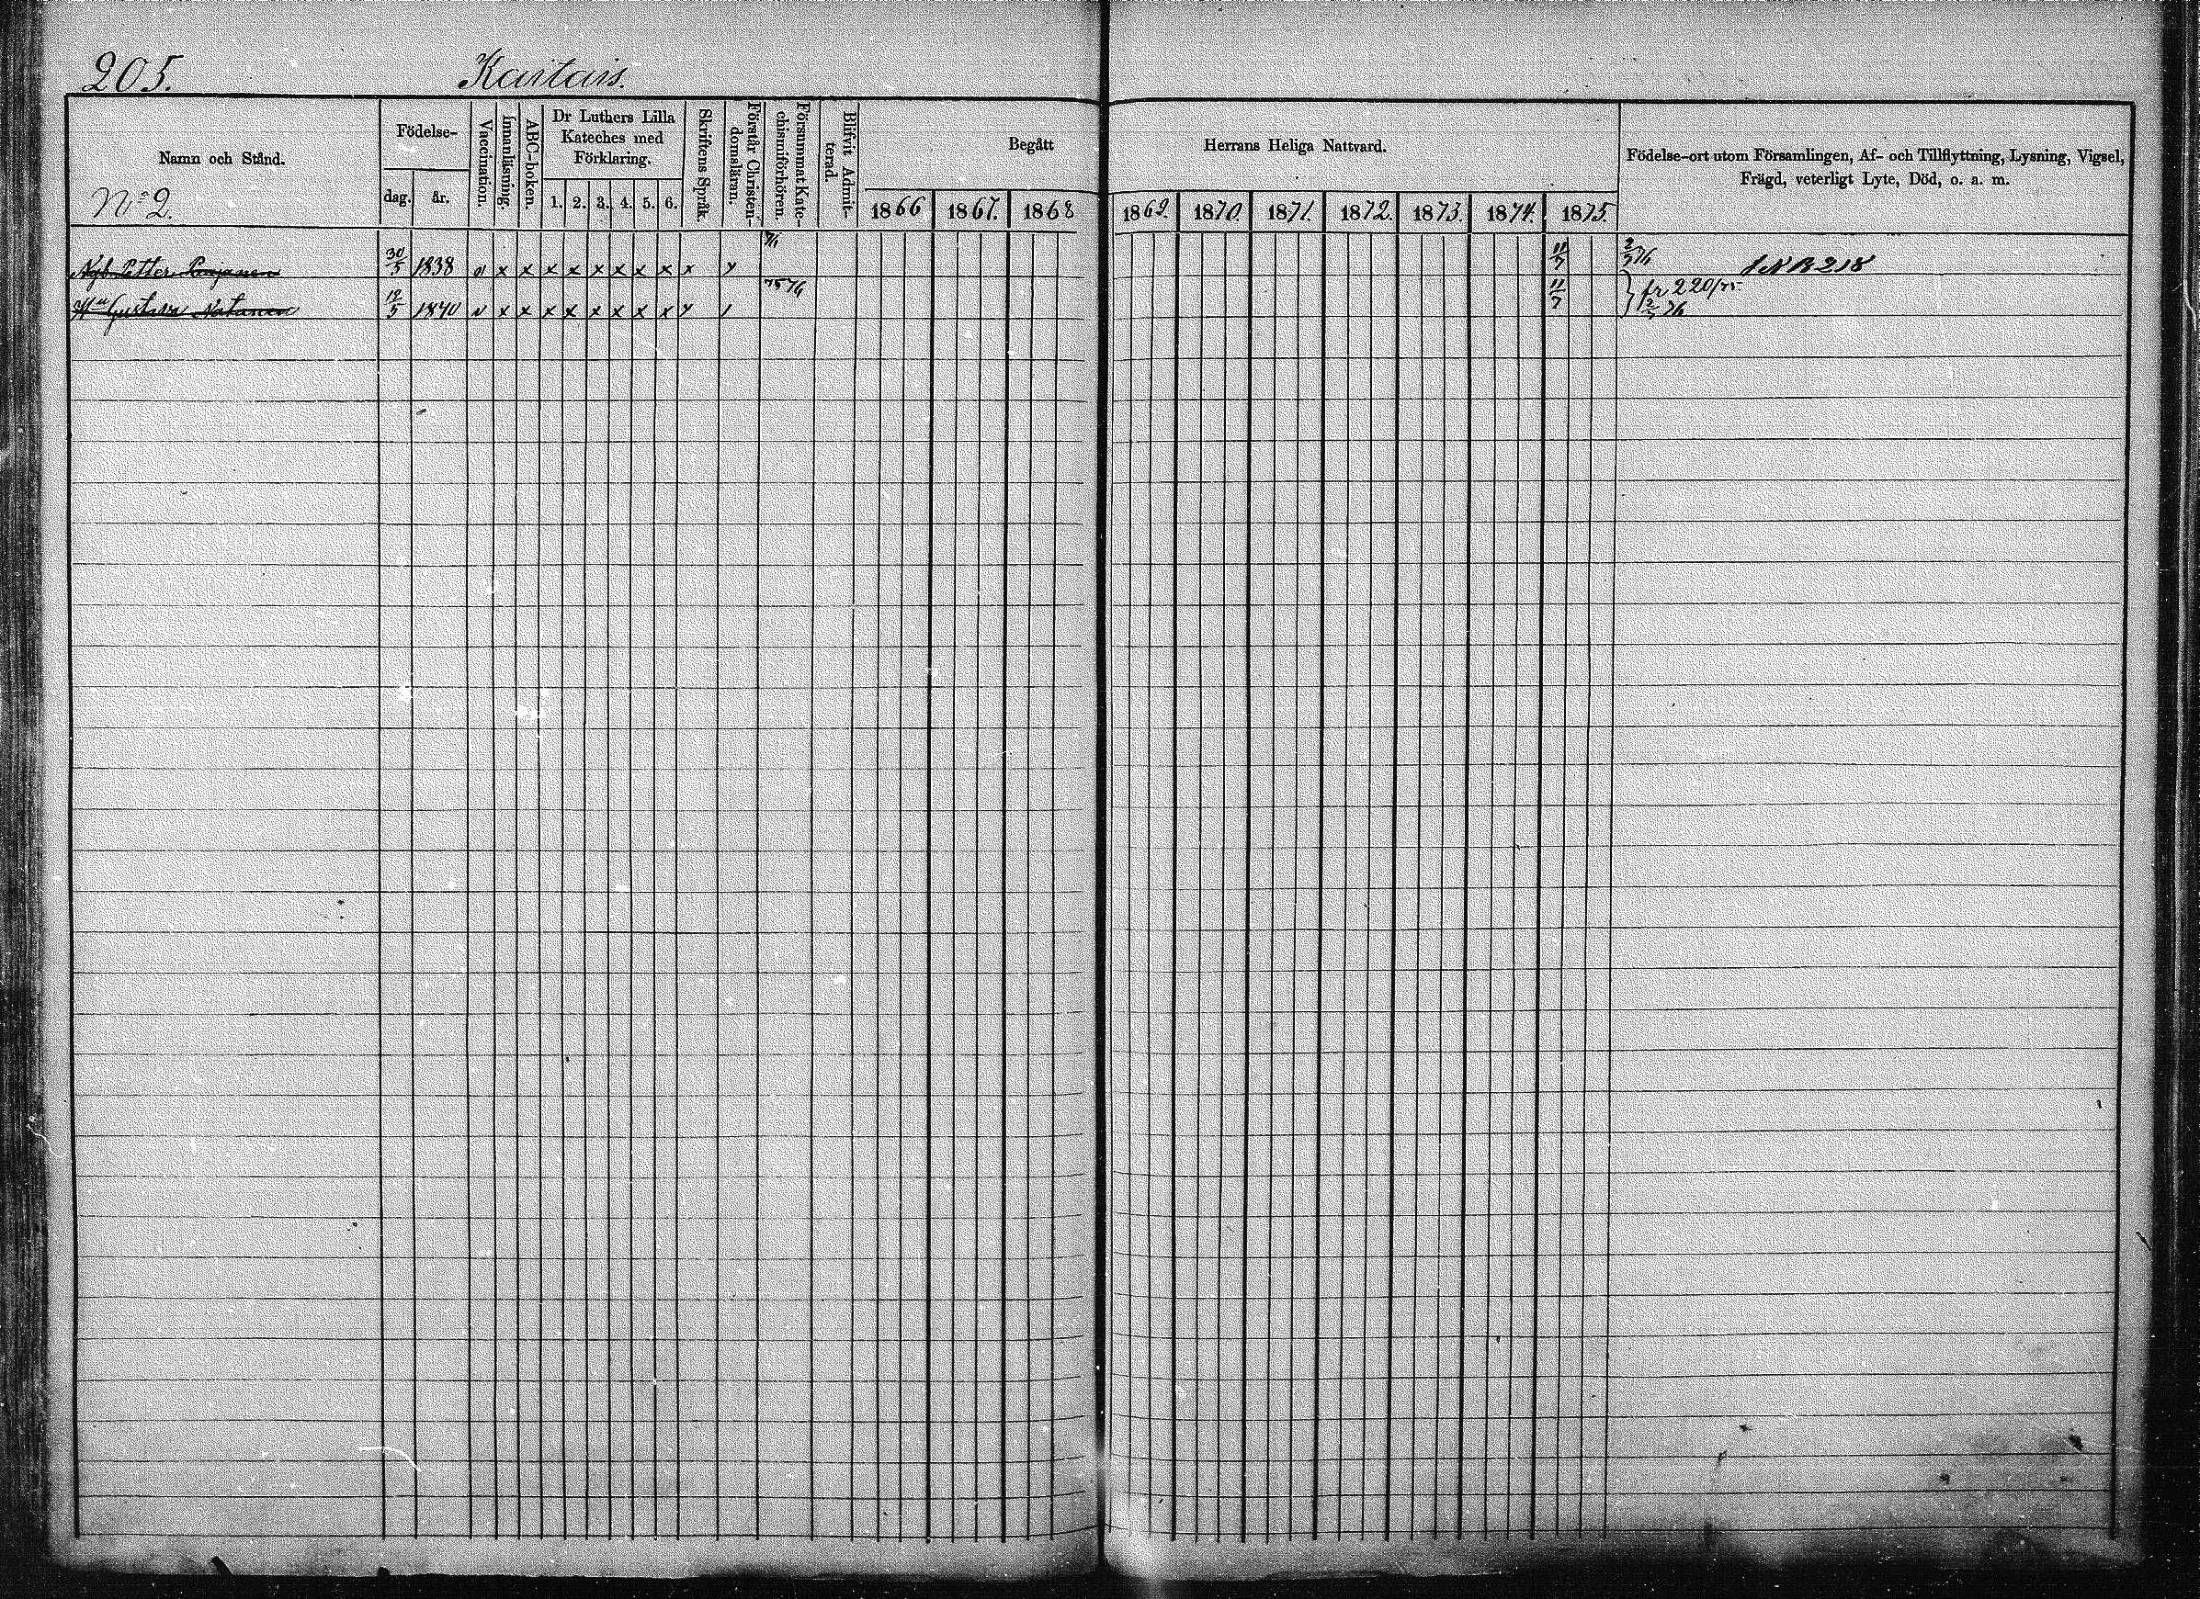 205. Kaitais.
Namn och Stånd.
No 2.
Födelse-
dag. år.
Vaccination.
Innanläsning.
ABC-boken.
Dr Luthers Lilla
Kateches med
Förklaring.
1. 2. 3. 4. 5. 6.
Skriftens Språk.
Förstår Christen-
domsläran.
Försummat Kate-
chismiförhören.
Blifvit Admit-
terad.
Begått Herrans Heliga Nattvard.
1866 1867. 1868 1869. 1870. 1871. 1872. 1873. 1874. 1875.
Födelse-ort utom Församlingen, Af- och Tillflyttning, Lysning, Vigsel,
Frägd, veterligt Lyte, Död, o. a. m.
Petter 30/5 1838 v x x x x x x x x x 11/7 NB 218
Hu Gustava Natanen 19/5 1840 v x x x x x x x x 75 76 11/7 fr 220/75